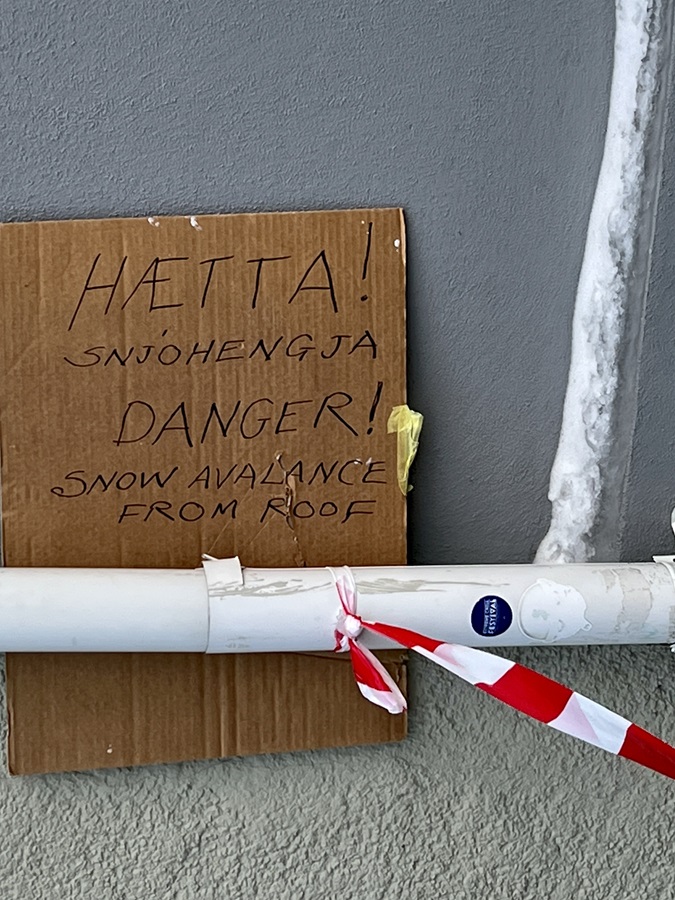 HÆTTA!
SNJÓHENGJA
DANGER!
SNOW AVALANCE
FROM ROOF
FESTIVAL